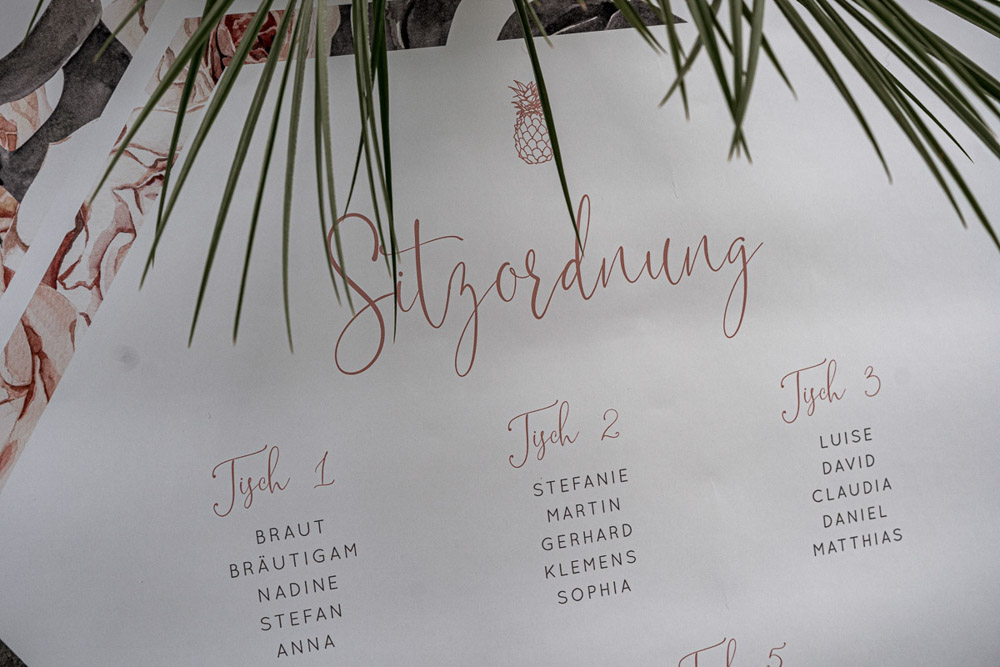 Sitzordnung
Tisch 1
BRAUT
BRÄUTIGAM
NADINE
STEFAN
ANNA
Tisch 2
STEFANIE
MARTIN
GERHARD
KLEMENS
SOPHIA
Tisch 3
LUISE
DAVID
CLAUDIA
DANIEL
MATTHIAS
Tisch 5